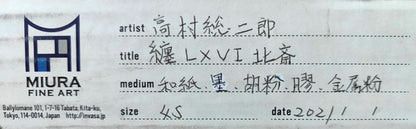 artist 高村総二郎
title 纏LXVI北斎
medium 和紙、墨、胡粉、膠、金属粉
size 4S date 2021/1/1
MIURA
FINE ART
Ballylomane 101, 1-7-16 Tabata, Kita-ku,
Tokyo, 114-0014, Japan http://invasa.jp